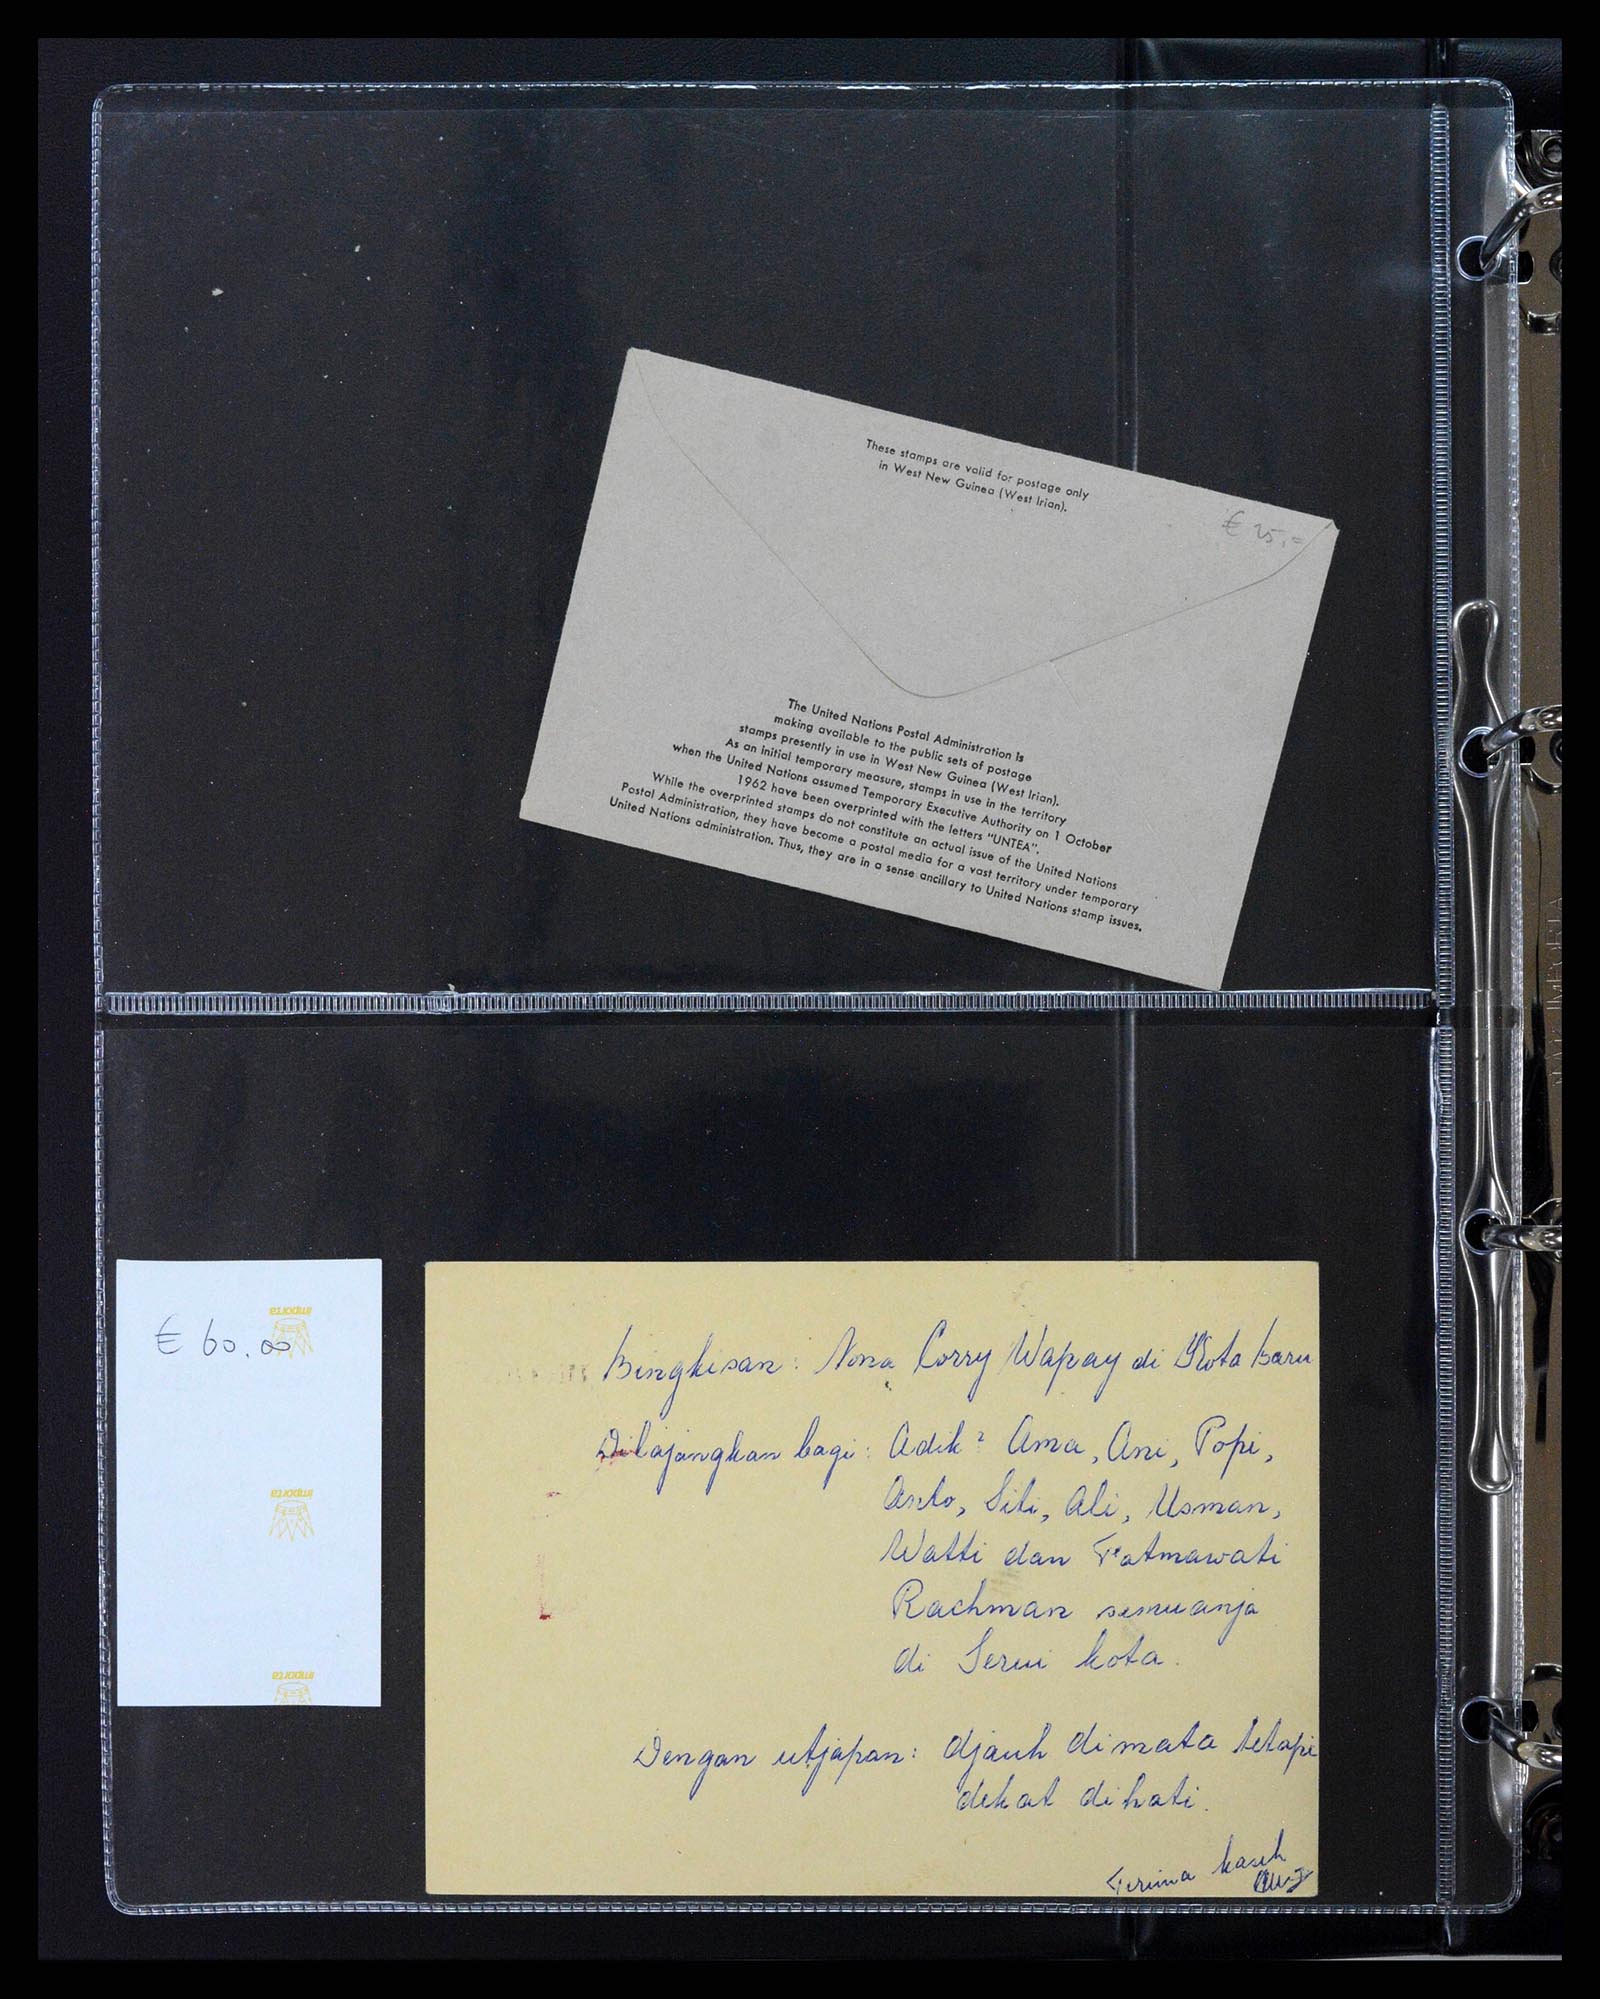 These stamps are valid for postage only
in West New Guinea (West Irian).
€ 25,=
The United Nations Postal Administration is
making available to the public sets of postage
stamps presently in use in West New Guinea (West Irian).
As an initial temporary measure, stamps in use in the territory
when the United Nations assumed Temporary Executive Authority on 1 October
1962 have been overprinted with the letters "UNTEA".
While the overprinted stamps do not constitute an actual issue of the United Nations
Postal Administration, they have become a postal media for a vast territory under temporary
United Nations administration. Thus, they are in a sense ancillary to United Nations stamp issues.
importa
€ 60.00
importa
importa
Bingkisan: Nona Corry Wapay di Kota baru
Dilajangkan bagi: Adik² Ama, Ani, Popi,
Anto, Siti, Ali, Usman,
Watti dan Fatmawati
Rachman semuanja
di Serui kota.
Dengan utjapan: djauh dimata tetapi
dekat dihati.
Terima kasih